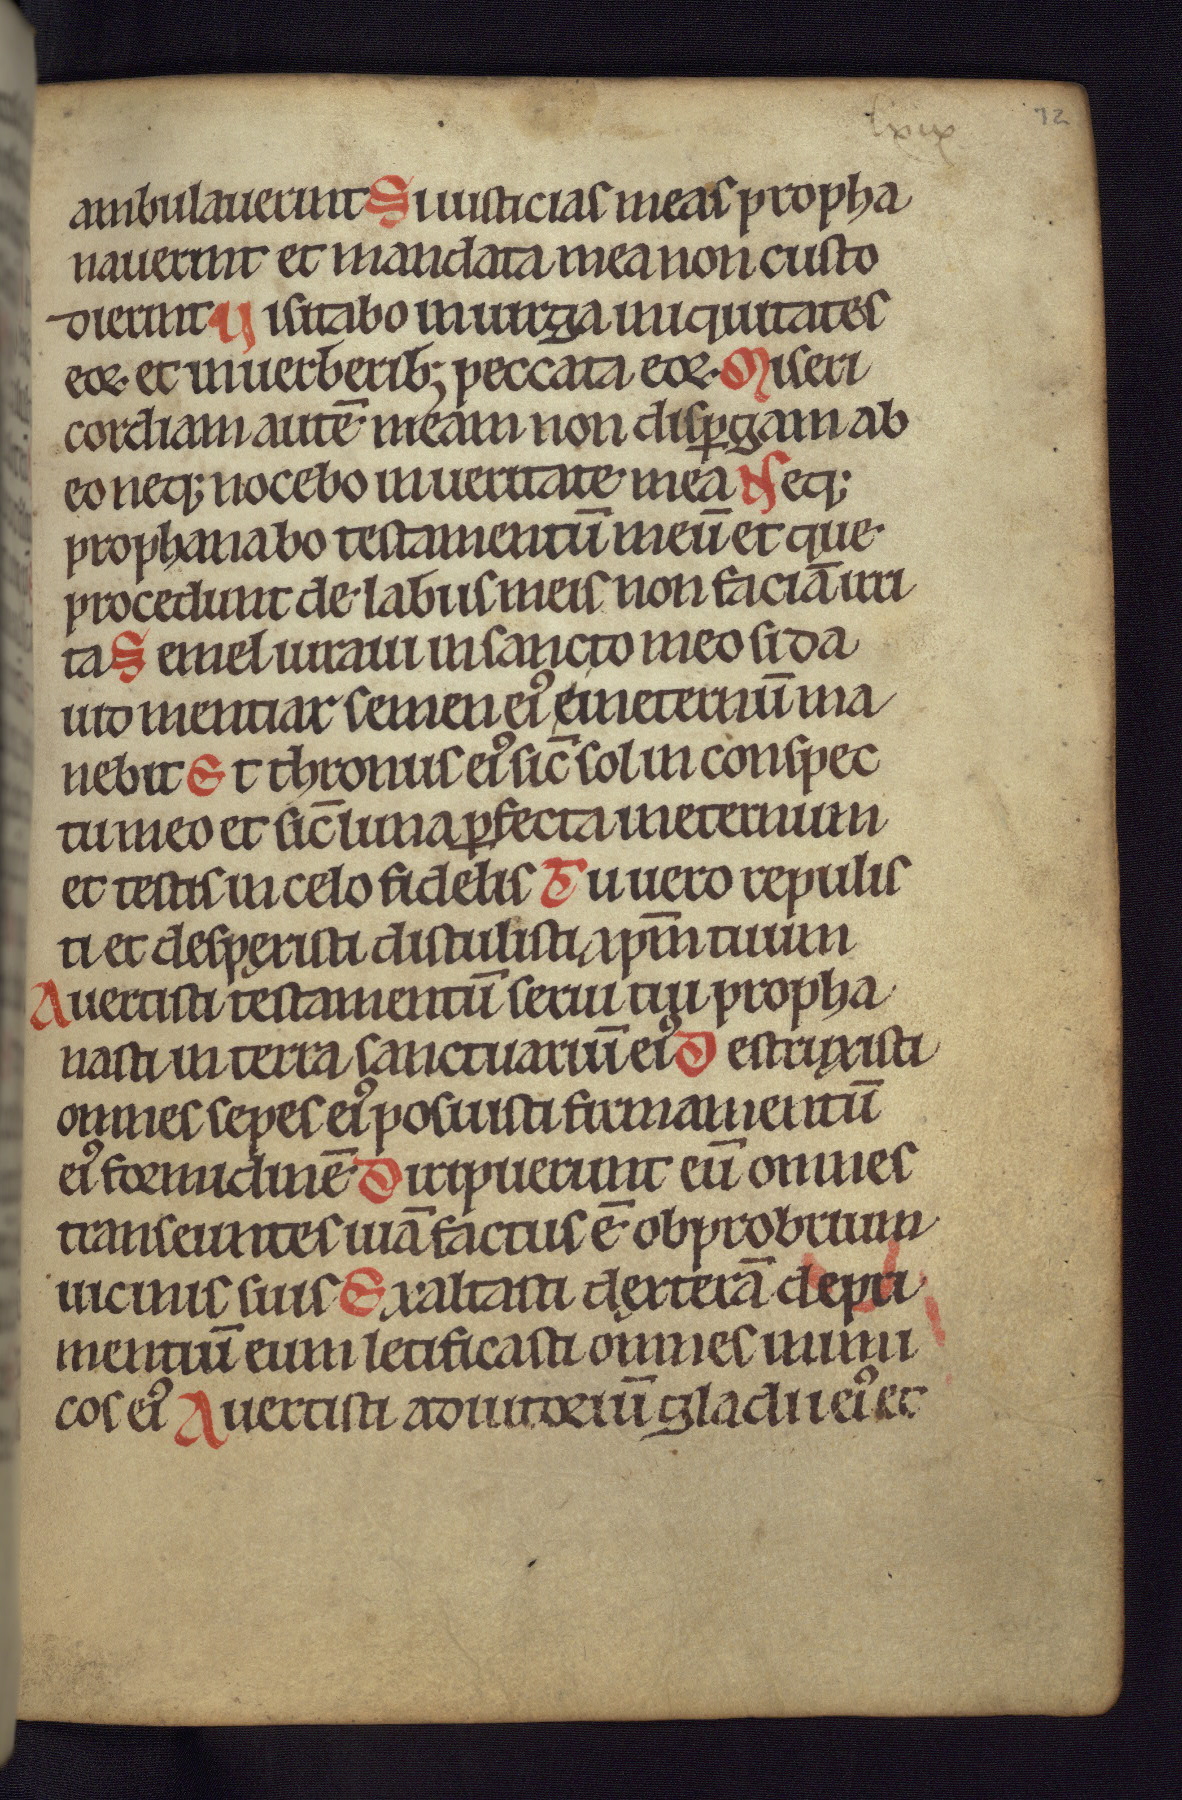 lxix 72
ambulauerunt Si iusticias meas propha
nauerint et mandata mea non custo
dierint Uisitabo in uirga iniquitates
eoꝝ et in uerberib; peccata eoꝝ. Miseri
cordiam autē meam non disꝑgam ab
eo neq; nocebo in ueritate mea Neq;
prophanabo testamentū meū et que
procedunt de labiis meis non faciā irri
ta Semel iuraui in sancto meo si da
uid mentiar semen eiꝰ in eternū ma
nebit Et thronus eiꝰ sic̄ sol in conspec
tu meo et sic̄ luna ꝑfecta in eternum
et testis in celo fidelis Tu uero repulis
ti et desperisti distulisti xp̄m tuum
Auertisti testamentū serui tui propha
nasti in terra sanctuariū eiꝰ Destruxisti
omnes sepes eiꝰ posuisti firmamentū
eiꝰ formidinē Diripuerunt eū omnes
transeuntes uiā factus ē obprobrium
uicinis suis Exaltasti dexterā depri
mentiū eum letificasti omnes inimi
cos eiꝰ Auertisti adiutoriū gladii eiꝰ et